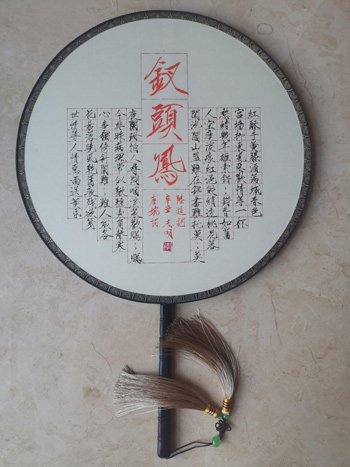 釵頭鳳
紅酥手黃藤酒滿城春色
宮墻柳東風惡歡情薄一杯
愁緒幾年離索錯：春如舊
人空瘦淚痕紅浥鮫綃透桃花落
閑池閣山盟雖在錦書難托莫：莫
陸游詞
世情薄人情惡雨送黃昏
花易落曉風乾淚痕殘欲箋
心事獨語斜闌難：難人成各
今非昨病魂常似秋千索角聲寒
夜闌珊怕人尋問咽淚裝歡瞞：瞞